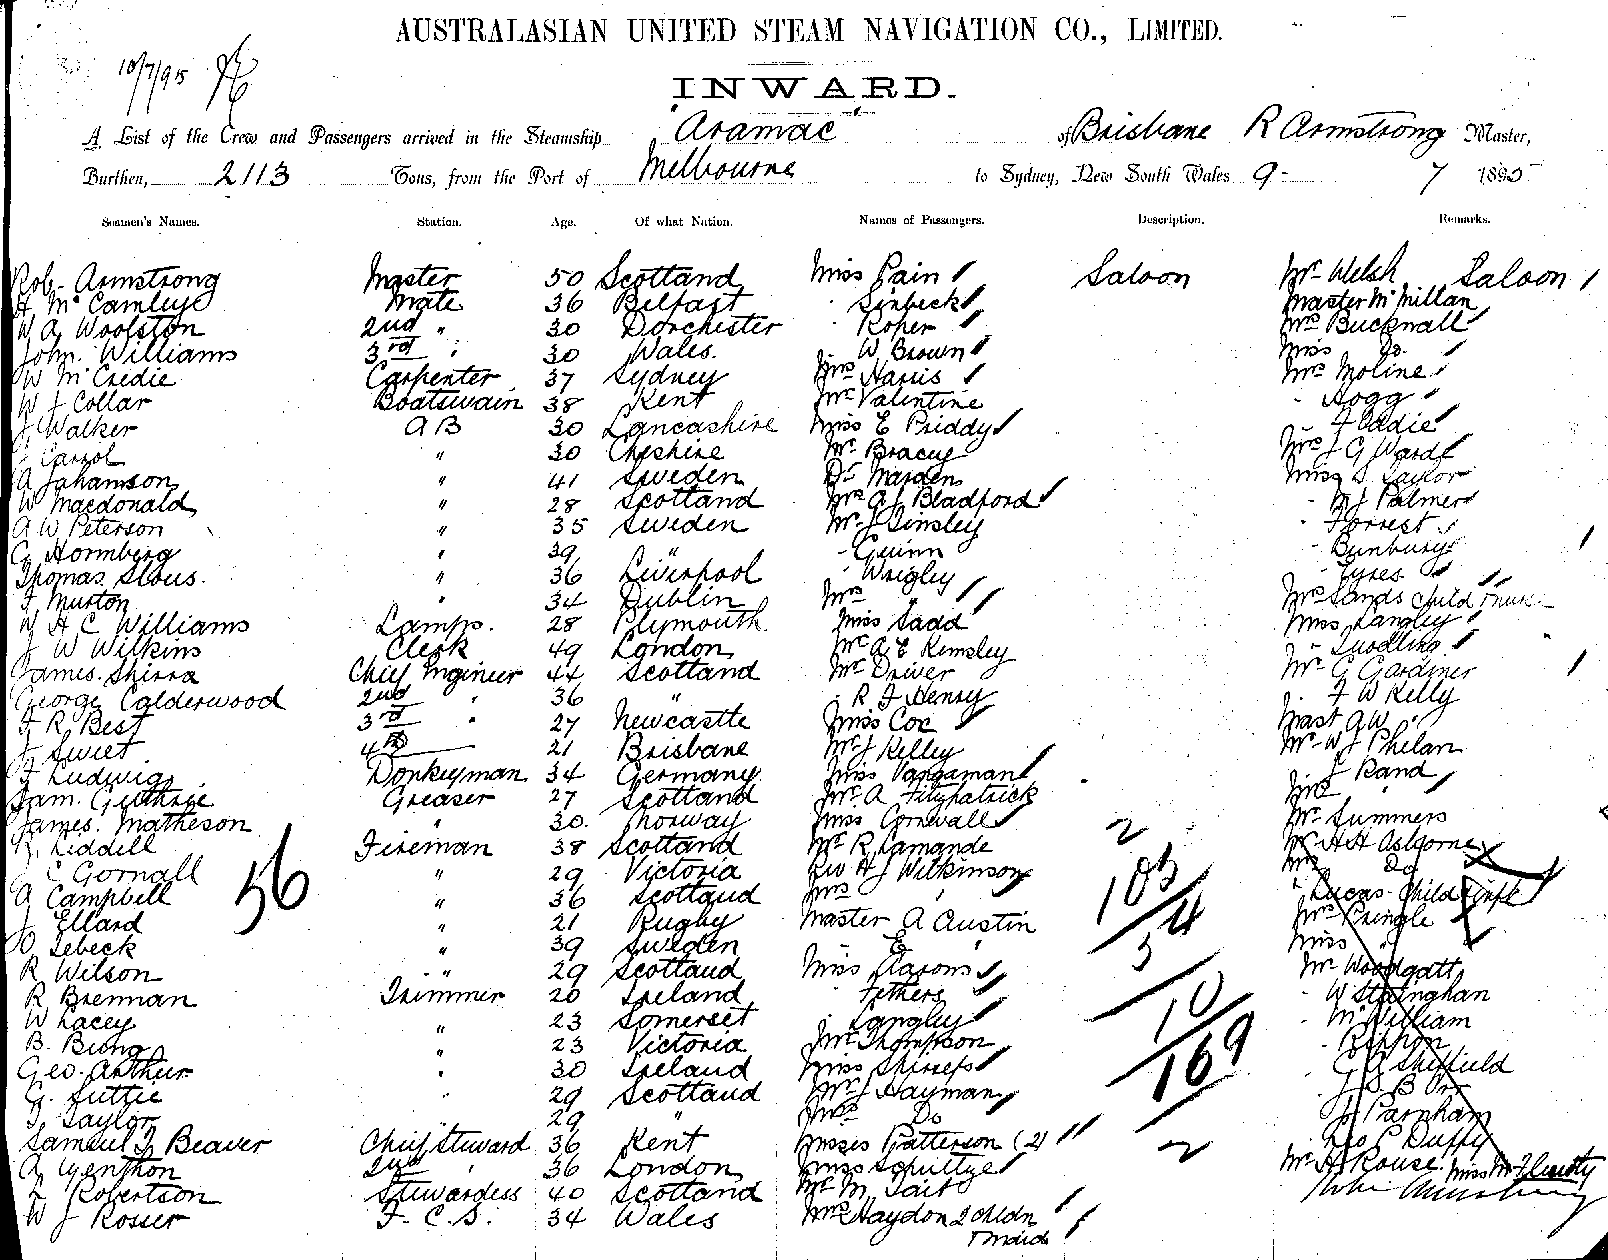 AUSTRALASIAN UNITED STEAM NAVIGATION CO., LIMITED.
10/7/95
INWARD.
A List of the Crew and Passengers arrived in the Steamship "Aramac" of Brisbane R Armstrong Master,
Burthen, 2113 Tons, from the Port of Melbourne to Sydney, New South Wales 9- 7 1895
Seamen's Names. Station. Age. Of what Nation. Names of Passengers. Description. Remarks.
Rob. Armstrong Master 50 Scotland Miss Pain Saloon Mr Welsh Saloon
Mate 36 Belfast Sinbeck Master McMillan
W A Woolston 2nd " 30 Dorchester " Roper Mrs Bucknall
John Williams 3rd " 30 Wales. W Brown Miss Do.
W McCredie Carpenter 37 Sydney Mrs Harris Mrs Moline
W J Collar Boatswain 38 Kent Mr Valentine " Hogg
J Walker A B 30 Lancashire Miss E Priddy F Eddie
Carrol " 30 Cheshire Mr Bracey Mrs J G Ward
A Johanson " 41 Sweden Dr Marden Miss Taylor
W Macdonald " 28 Scotland Mrs A J Bladford " M J Palmer
A W Peterson " 35 Sweden Mr J Tinsley " Forrest
C Hormberg " 39 " " Guinn " Bunbury
Thomas Slous. " 36 Liverpool " Wrigley " Eyres
F Murton " 34 Dublin Mrs " Mrs Sands Child & nurse
W H C Williams Lamps. 28 Plymouth Miss Sadd Miss Langley
J W Wilkins Clerk 49 London Mr A E Kemsley "
James Shirra Chief Engineer 44 Scotland Mr Driver Mr G Gardiner
George Calderwood 2nd " 36 " " R J Henry " F W Kelly
F R Best 3rd " 27 Newcastle Miss Cox Mast A W "
J Sweet 4th 21 Brisbane Mr J Kelley Mr W J Phelan
F Ludwig Donkeyman 34 Germany Miss Vangaman J Rand
Jam. Guthrie Greaser 27 Scotland Mr A Fitzpatrick Mrs "
James Matheson " 30. Norway Miss Cornwall Mr Summers
R. Liddell Fireman 38 Scotland Mr R Lamande Mr H H Osborne
J C Gornall " 29 Victoria Rev H J Wilkinson Mrs Do
A Campbell " 36 Scotland Mrs " " Lucas Child & inft
J Ellard " 21 Rugby Master A Austin Mrs Pringle
O Lebeck " 39 Sweden E " Miss "
R Wilson " 29 Scotland Miss Aarons Mr Woodgatt
R Brennan Trimmer 20 Ireland " Fethers " W Stainghan
W Lacey " 23 Somerset " Langley " McWilliam
B. Bung " 23 Victoria Mr Thompson " Rippon
Geo. Arthur " 30 Ireland Miss Shirrefs G A Sheffield
G. Suttie " 29 Scotland Mr J Hayman
T Taylor 29 " Mrs Do J Parnham
Samuel J Beaver Chief Steward 36 Kent Misses Patterson (2) Duffy
A Yenthon 2nd " 36 London Miss Schultze Mr H Rouse.
F Robertson Stewardess 40 Scotland Mr M Tait
W J Rosser F. C. S. 34 Wales Mrs Haydon 2 chldn
& maid
56
2
103/4
3
10
169
2